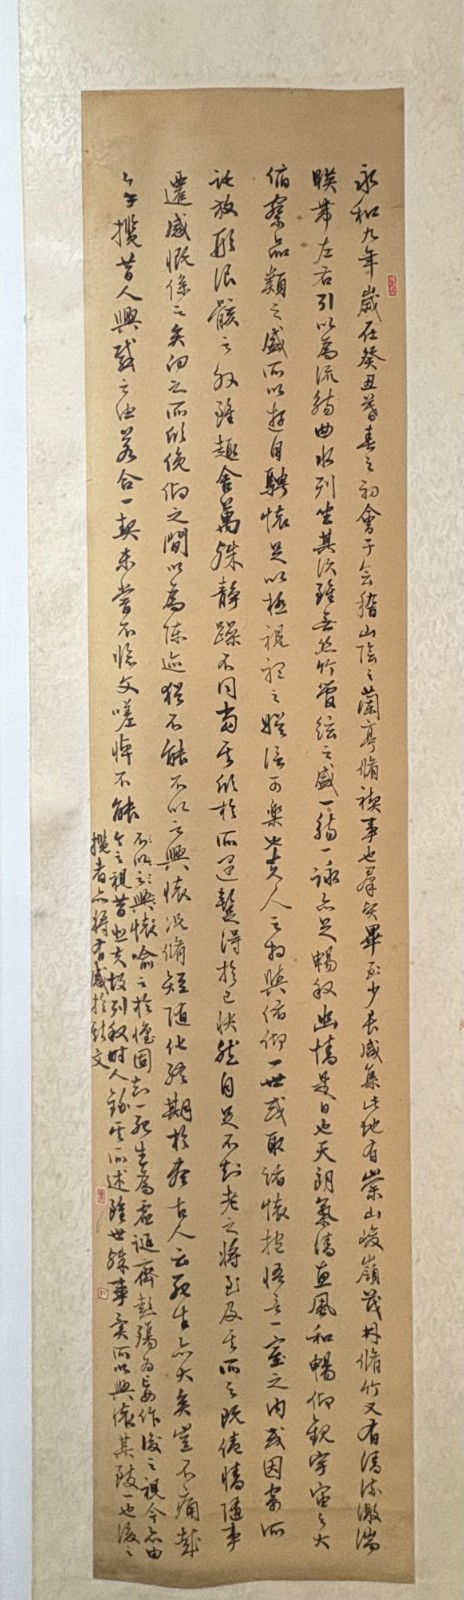 永和九年歲在癸丑暮春之初會于會稽山陰之蘭亭脩禊事也羣賢畢至少長咸集此地有崇山峻嶺茂林脩竹又有清流激湍
暎帶左右引以為流觴曲水列坐其次雖無絲竹管絃之盛一觴一詠亦足暢敘幽情是日也天朗氣清惠風和暢仰觀宇宙之大
俯察品類之盛所以遊目騁懷足以極視聽之娛信可樂也夫人之相與俯仰一世或取諸懷抱悟言一室之內或因寄所
託放形浪骸之外雖趣舍萬殊靜躁不同當其欣於所遇蹔得於己快然自足不知老之將至及其所之既倦情隨事
遷感慨係之矣向之所欣俛仰之間以為陳迹猶不能不以之興懷況脩短隨化終期於盡古人云死生亦大矣豈不痛哉
每攬昔人興感之由若合一契未嘗不臨文嗟悼不能
不以之興懷喻之於懷固知一死生為虛誕齊彭殤為妄作後之視今亦由
今之視昔悲夫故列敘時人錄其所述雖世殊事異所以興懷其致一也後之
攬者亦將有感於斯文